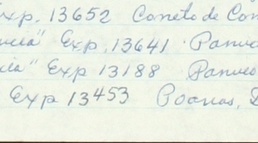 Exp. 13652 Caneto de Con
uia" Exp. 13641 Panuco
cia" Exp 13188 Panuco
Exp 13453 Poanas, D